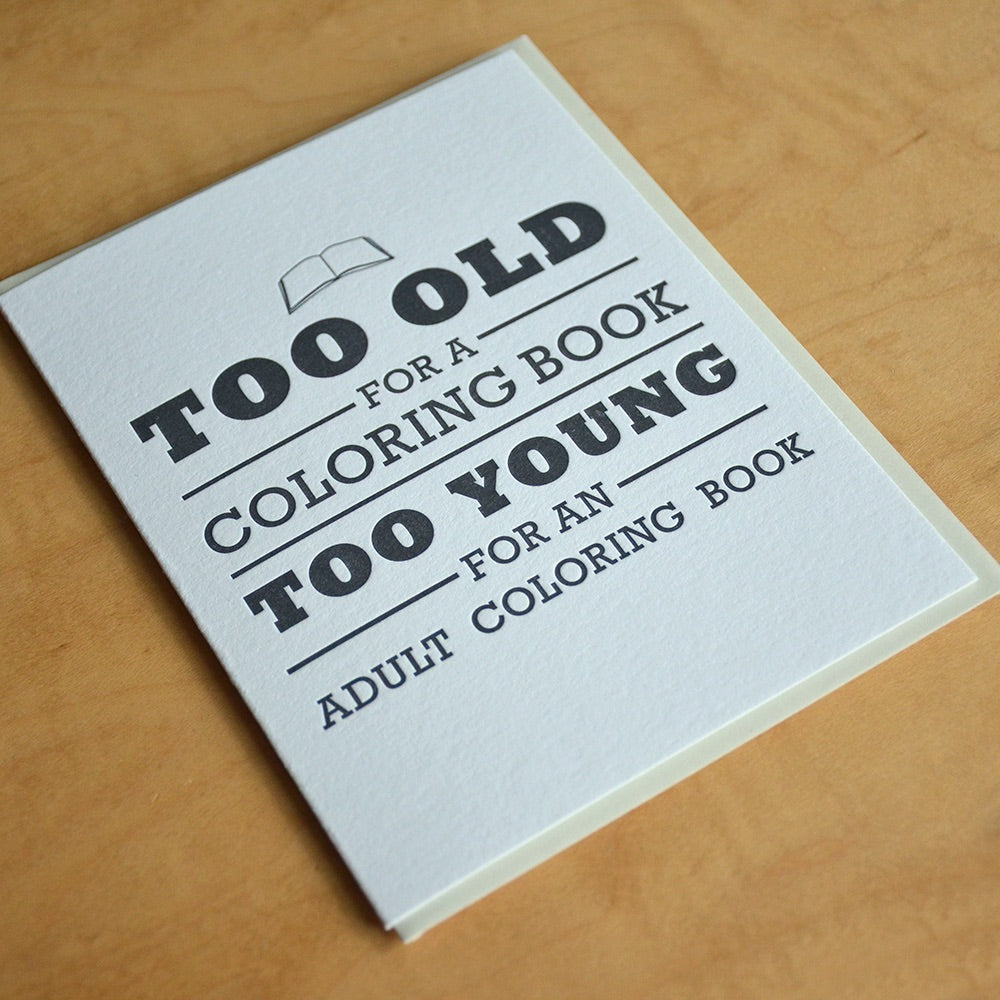 TOO OLD
FOR A
COLORING BOOK
TOO YOUNG
FOR AN
ADULT COLORING BOOK